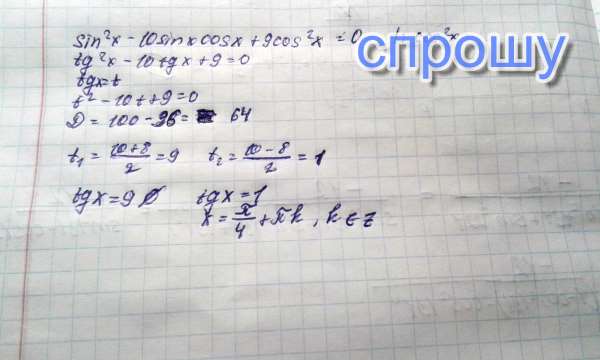 sin²x - 10sinxcosx + 9cos²x = 0
спрошу
tg²x - 10tgx + 9 = 0
tgx = t
t² - 10t + 9 = 0
D = 100 - 36 = 64
t₁ = (10+8)/2 = 9   t₂ = (10-8)/2 = 1
tgx = 9 ∅   tgx = 1
x = π/4 + πk, k ∈ z